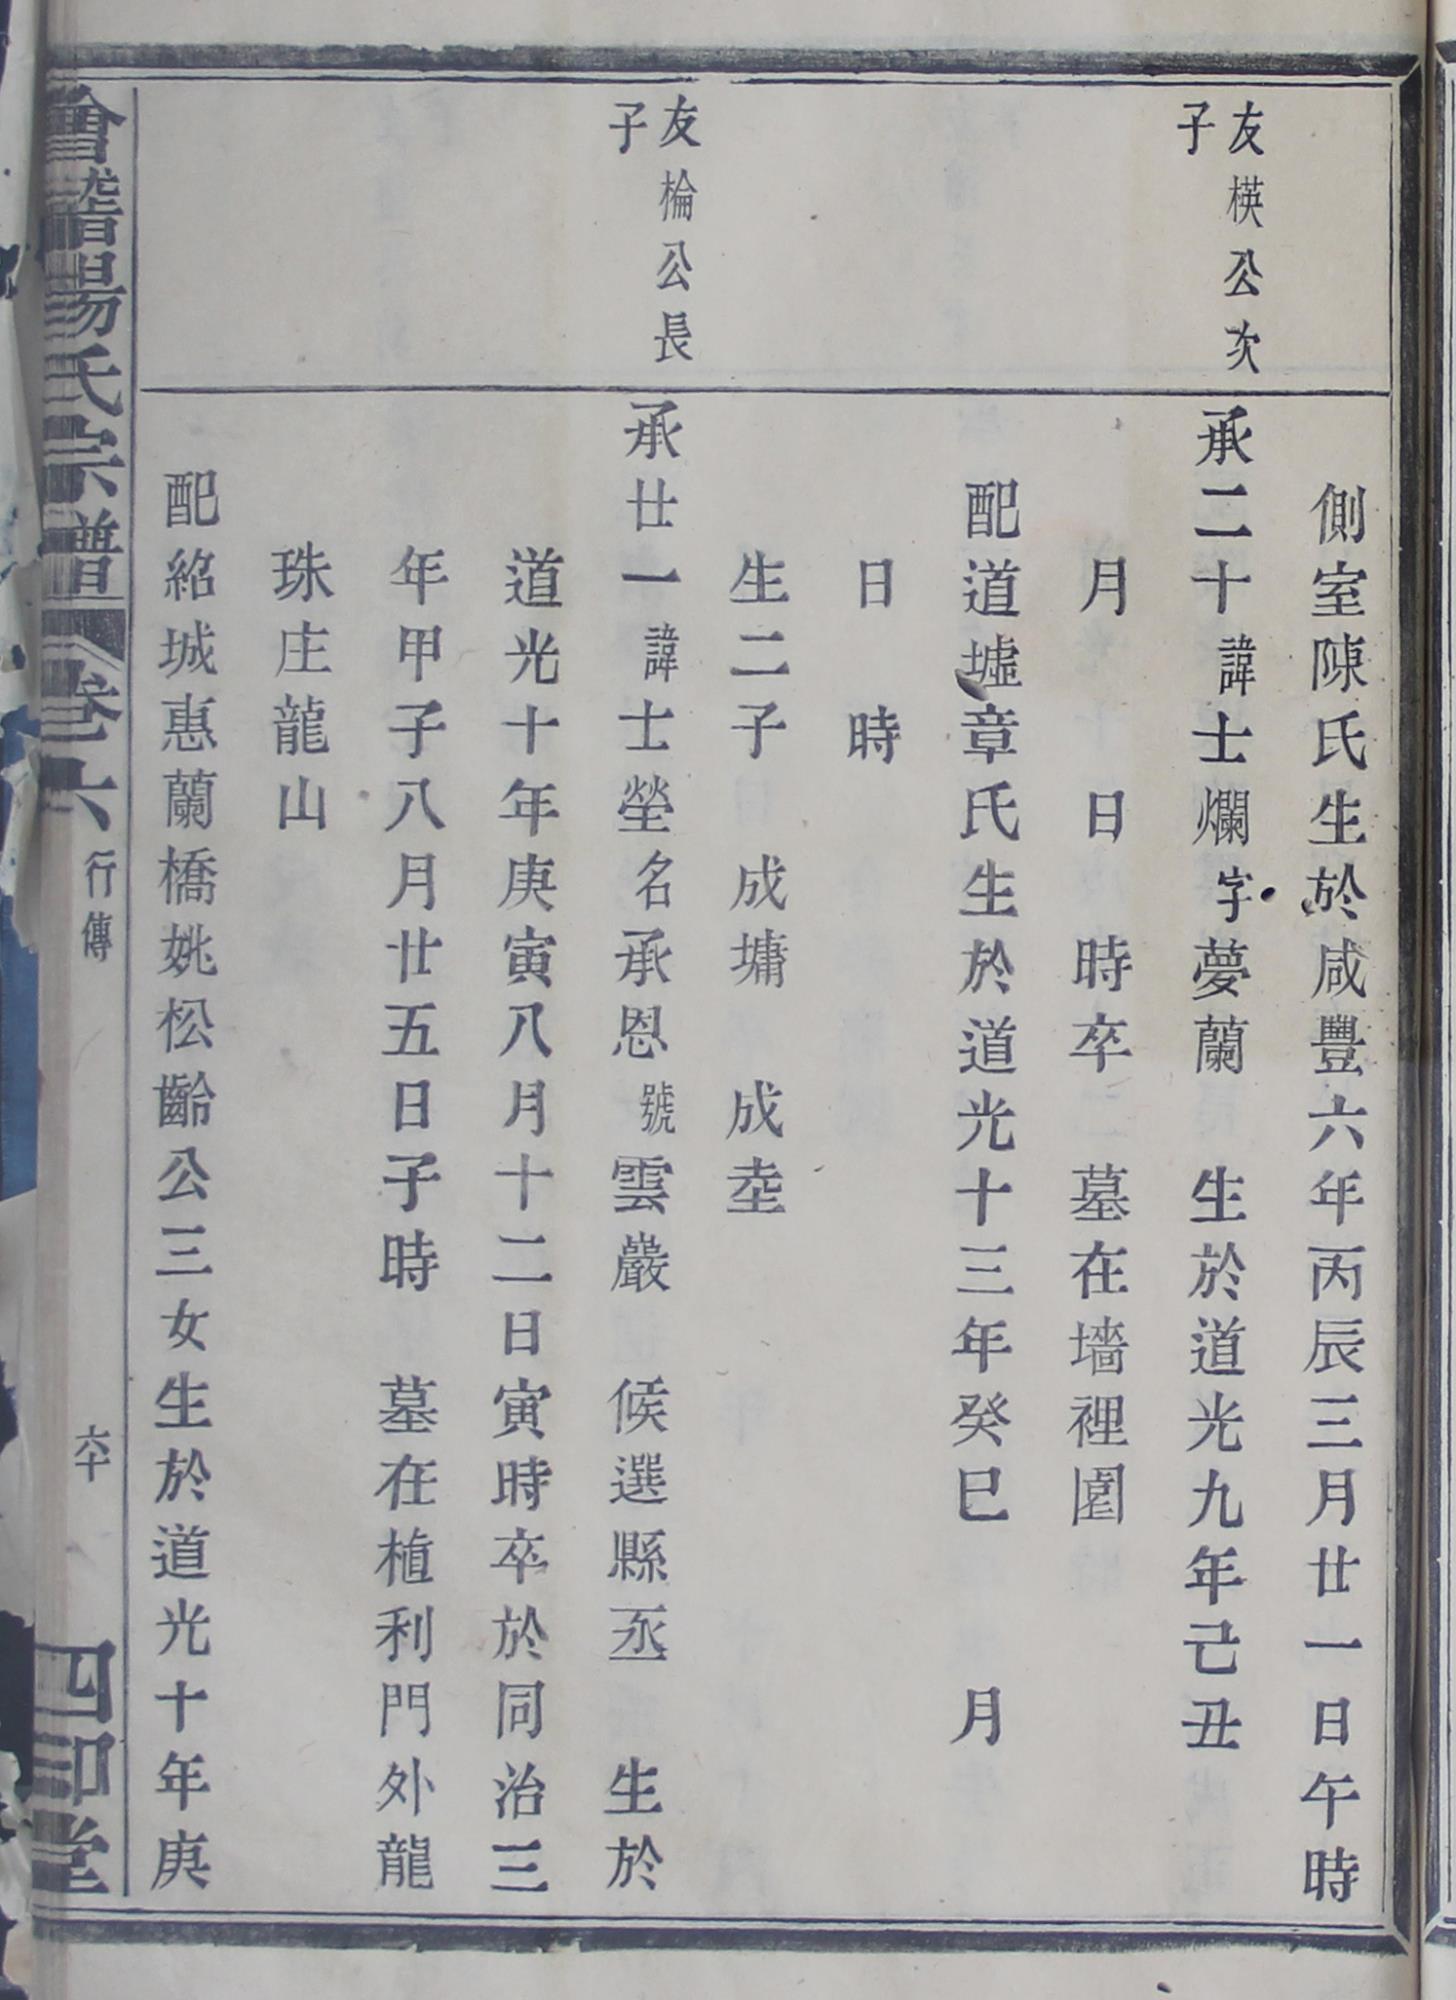 側室陳氏生於咸豐六年丙辰三月廿一日午時
友楧公次
子
承二十諱士爛字夢蘭 生於道光九年己丑
月 日 時卒 墓在墻裡園
配道墟章氏生於道光十三年癸巳 月
日 時
生二子 成墉 成坴
友棆公長
子
承廿一諱士塋名承恩號雲巖 候選縣丞 生於
道光十年庚寅八月十二日寅時卒於同治三
年甲子八月廿五日子時 墓在植利門外龍
珠庄龍山
配紹城惠蘭橋姚松齡公三女生於道光十年庚
會稽楊氏宗譜 卷六 行傳 六十 四知堂